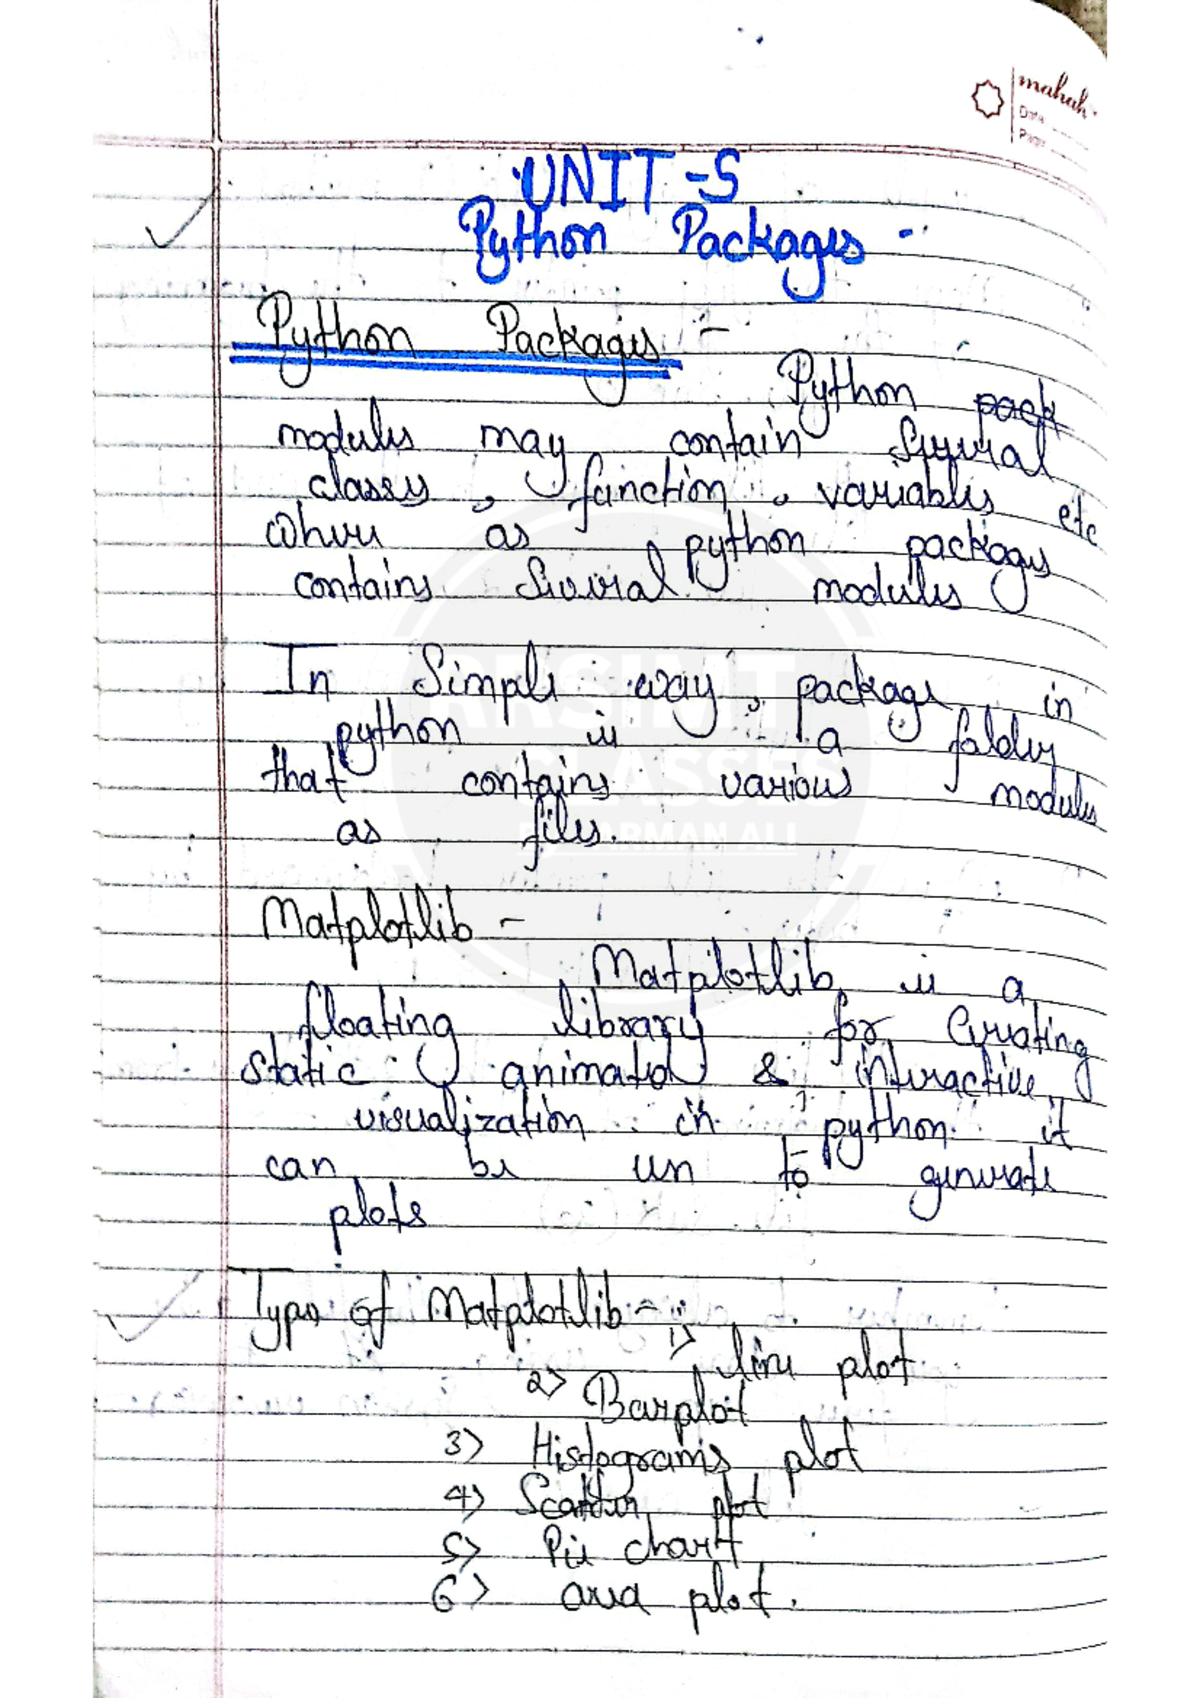 mahak
Date
Page
UNIT-5
Python Packages -
Python Packages :-
Python pack
modules may contain several
classes, function, variables etc
where as python packages
contains several modules
In Simple way, package in
python is a folder
that contains various modules
as files.
Matplotlib -
Matplotlib is a
floating library for Creating
static animated & interactive
visualization in python. it
can be use to generate
plots
Type of Matplotlib -:
1> line plot
2> Barplot
3> Histograms plot
4> Scatter plot
5> Pie chart
6> area plot.
CLASSES
ARMAN ALI